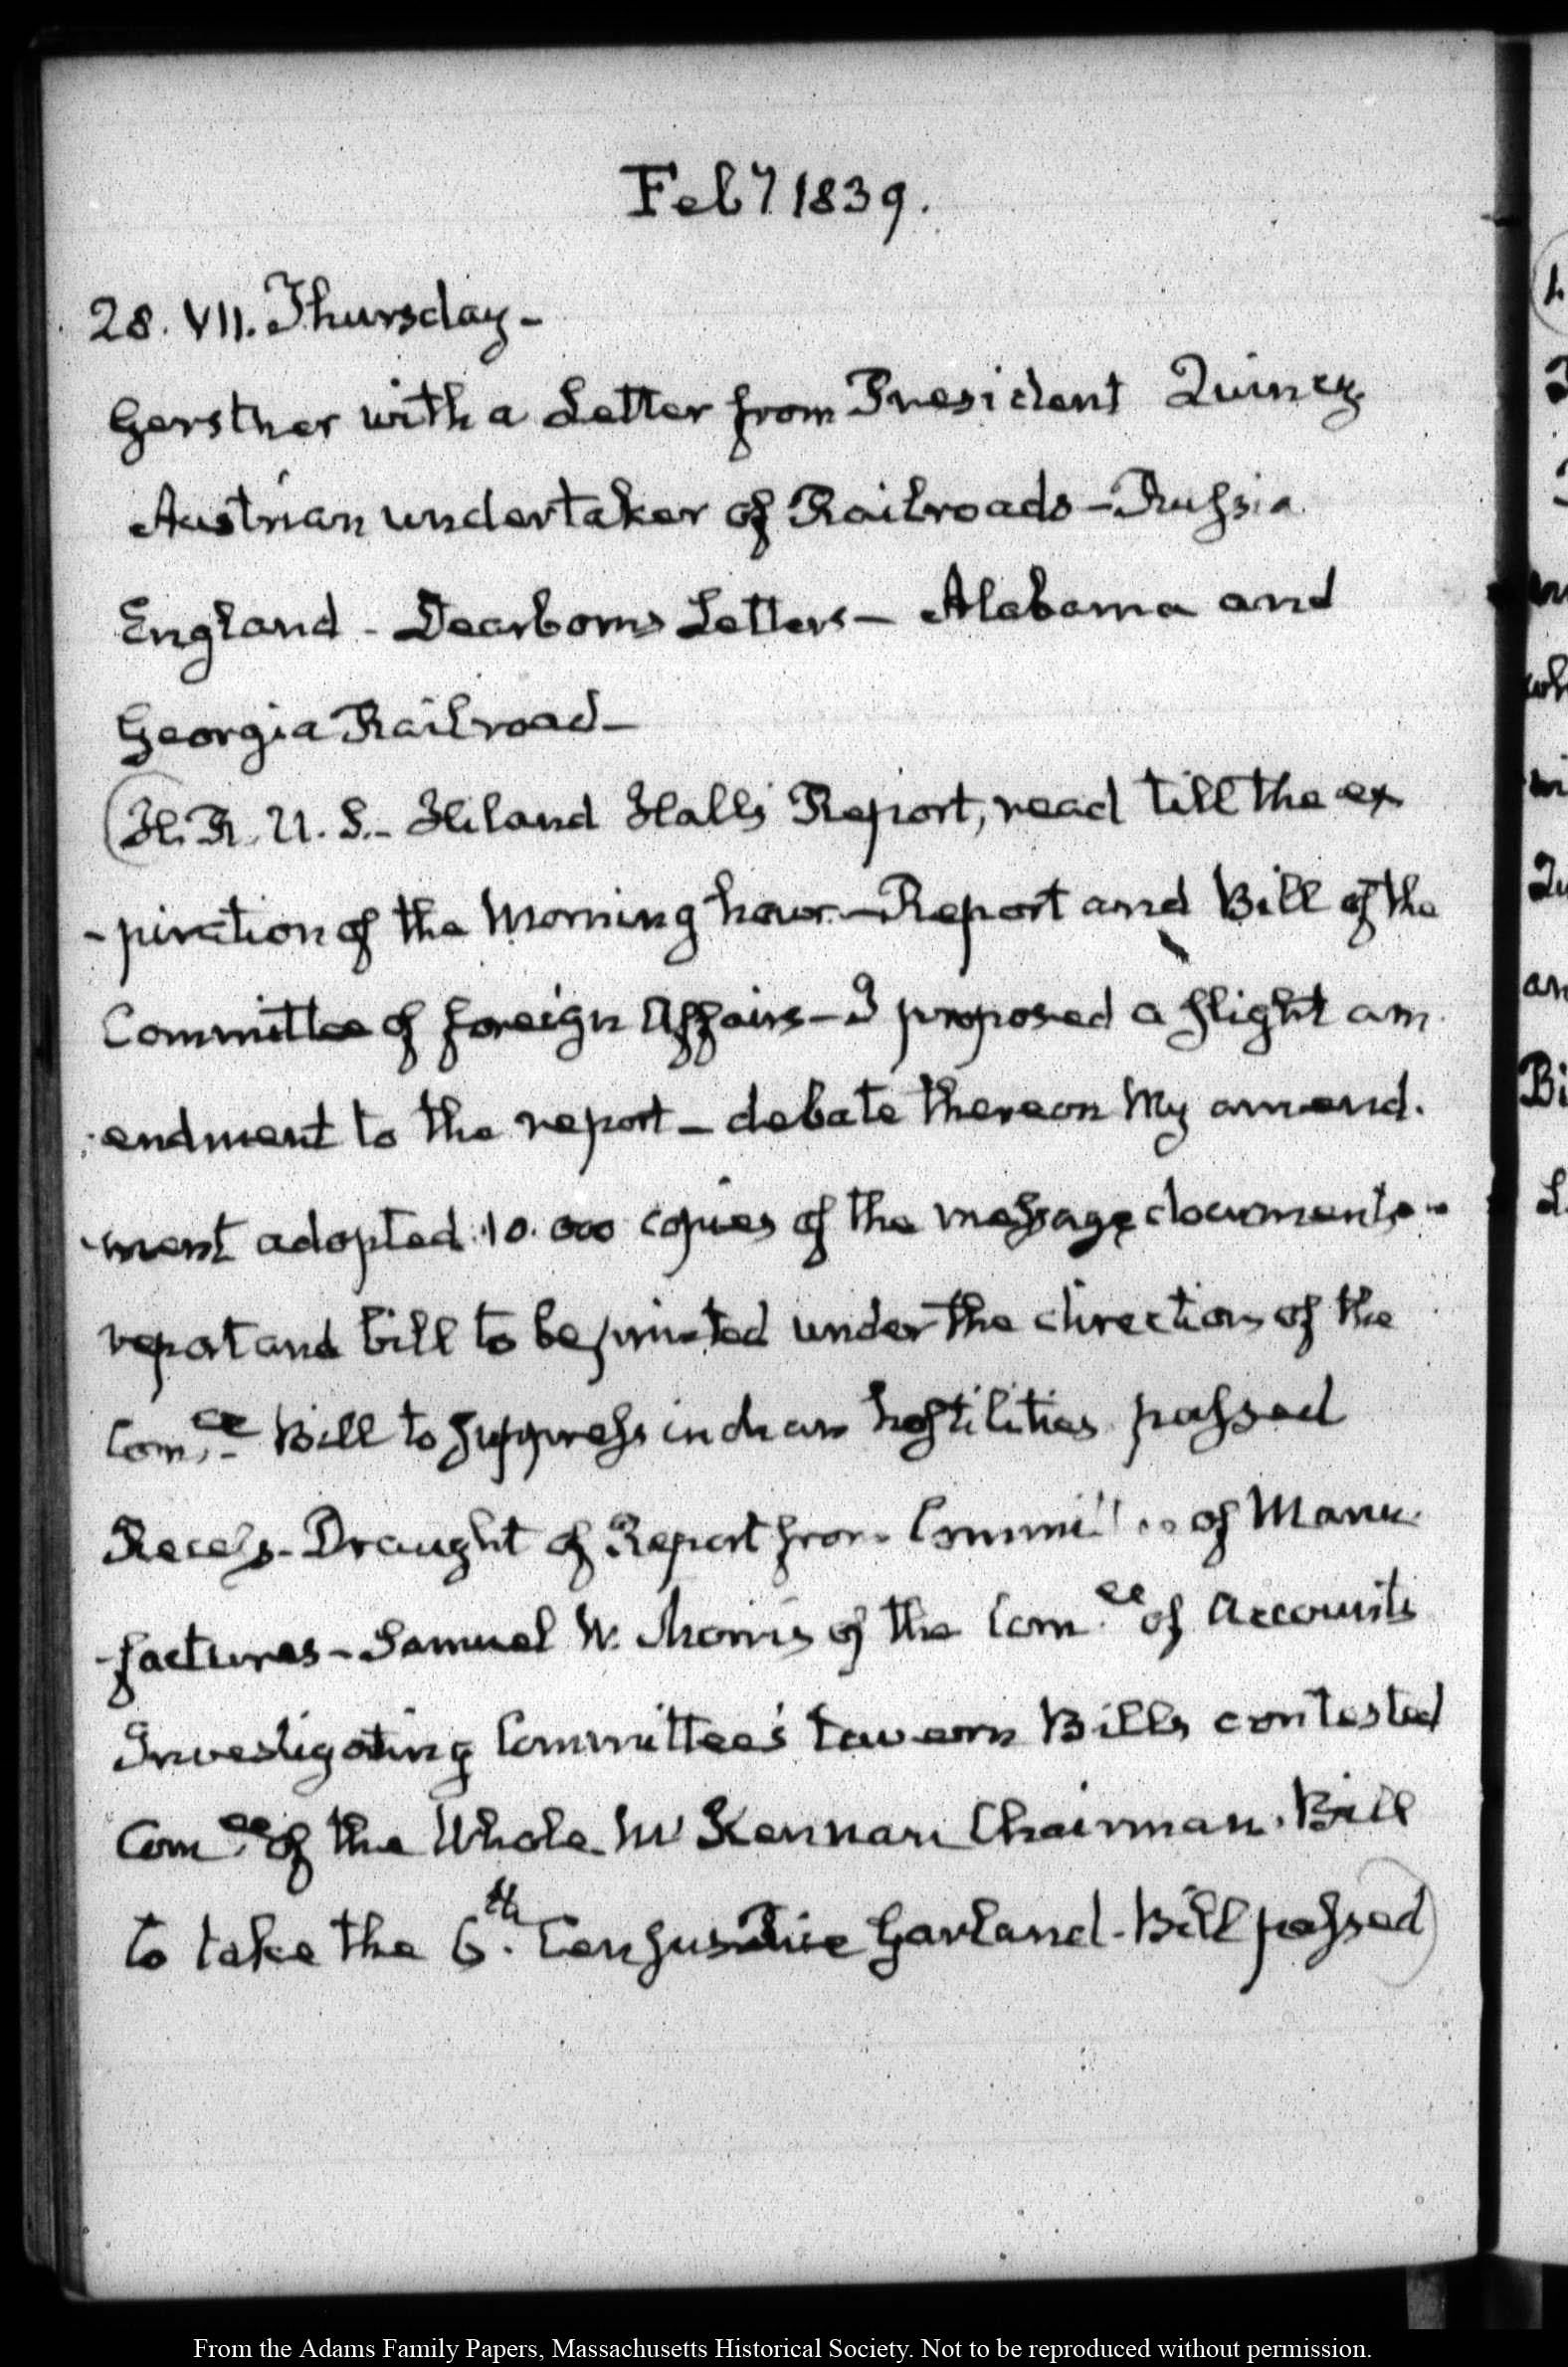 Feby 1839.
28. VII. Thursday-
Gerstner with a Letter from President Quincy
Austrian undertaker of Railroads - Russia
England - Dearborns Letters - Alabama and
Georgia Railroad-
H. R. U. S.- Hiland Halls Report, read till the ex
-piration of the Morning hour - Report and Bill of the
Committee of foreign Affairs - I proposed a slight am
endment to the report - debate thereon My amend.
ment adopted 10.000 copies of the message documents
report and bill to be printed under the direction of the
Comee Bill to suppress indian hostilities passed
Recess - Draught of Report from Committee of Manu
-factures - Samuel W. Morris of the Comee of Accounts
Investigating Committee's tavern Bills contested
Comee of the Whole Mc Kennan Chairman. Bill
to take the 6th Census Rice Garland - Bill passed
From the Adams Family Papers, Massachusetts Historical Society. Not to be reproduced without permission.